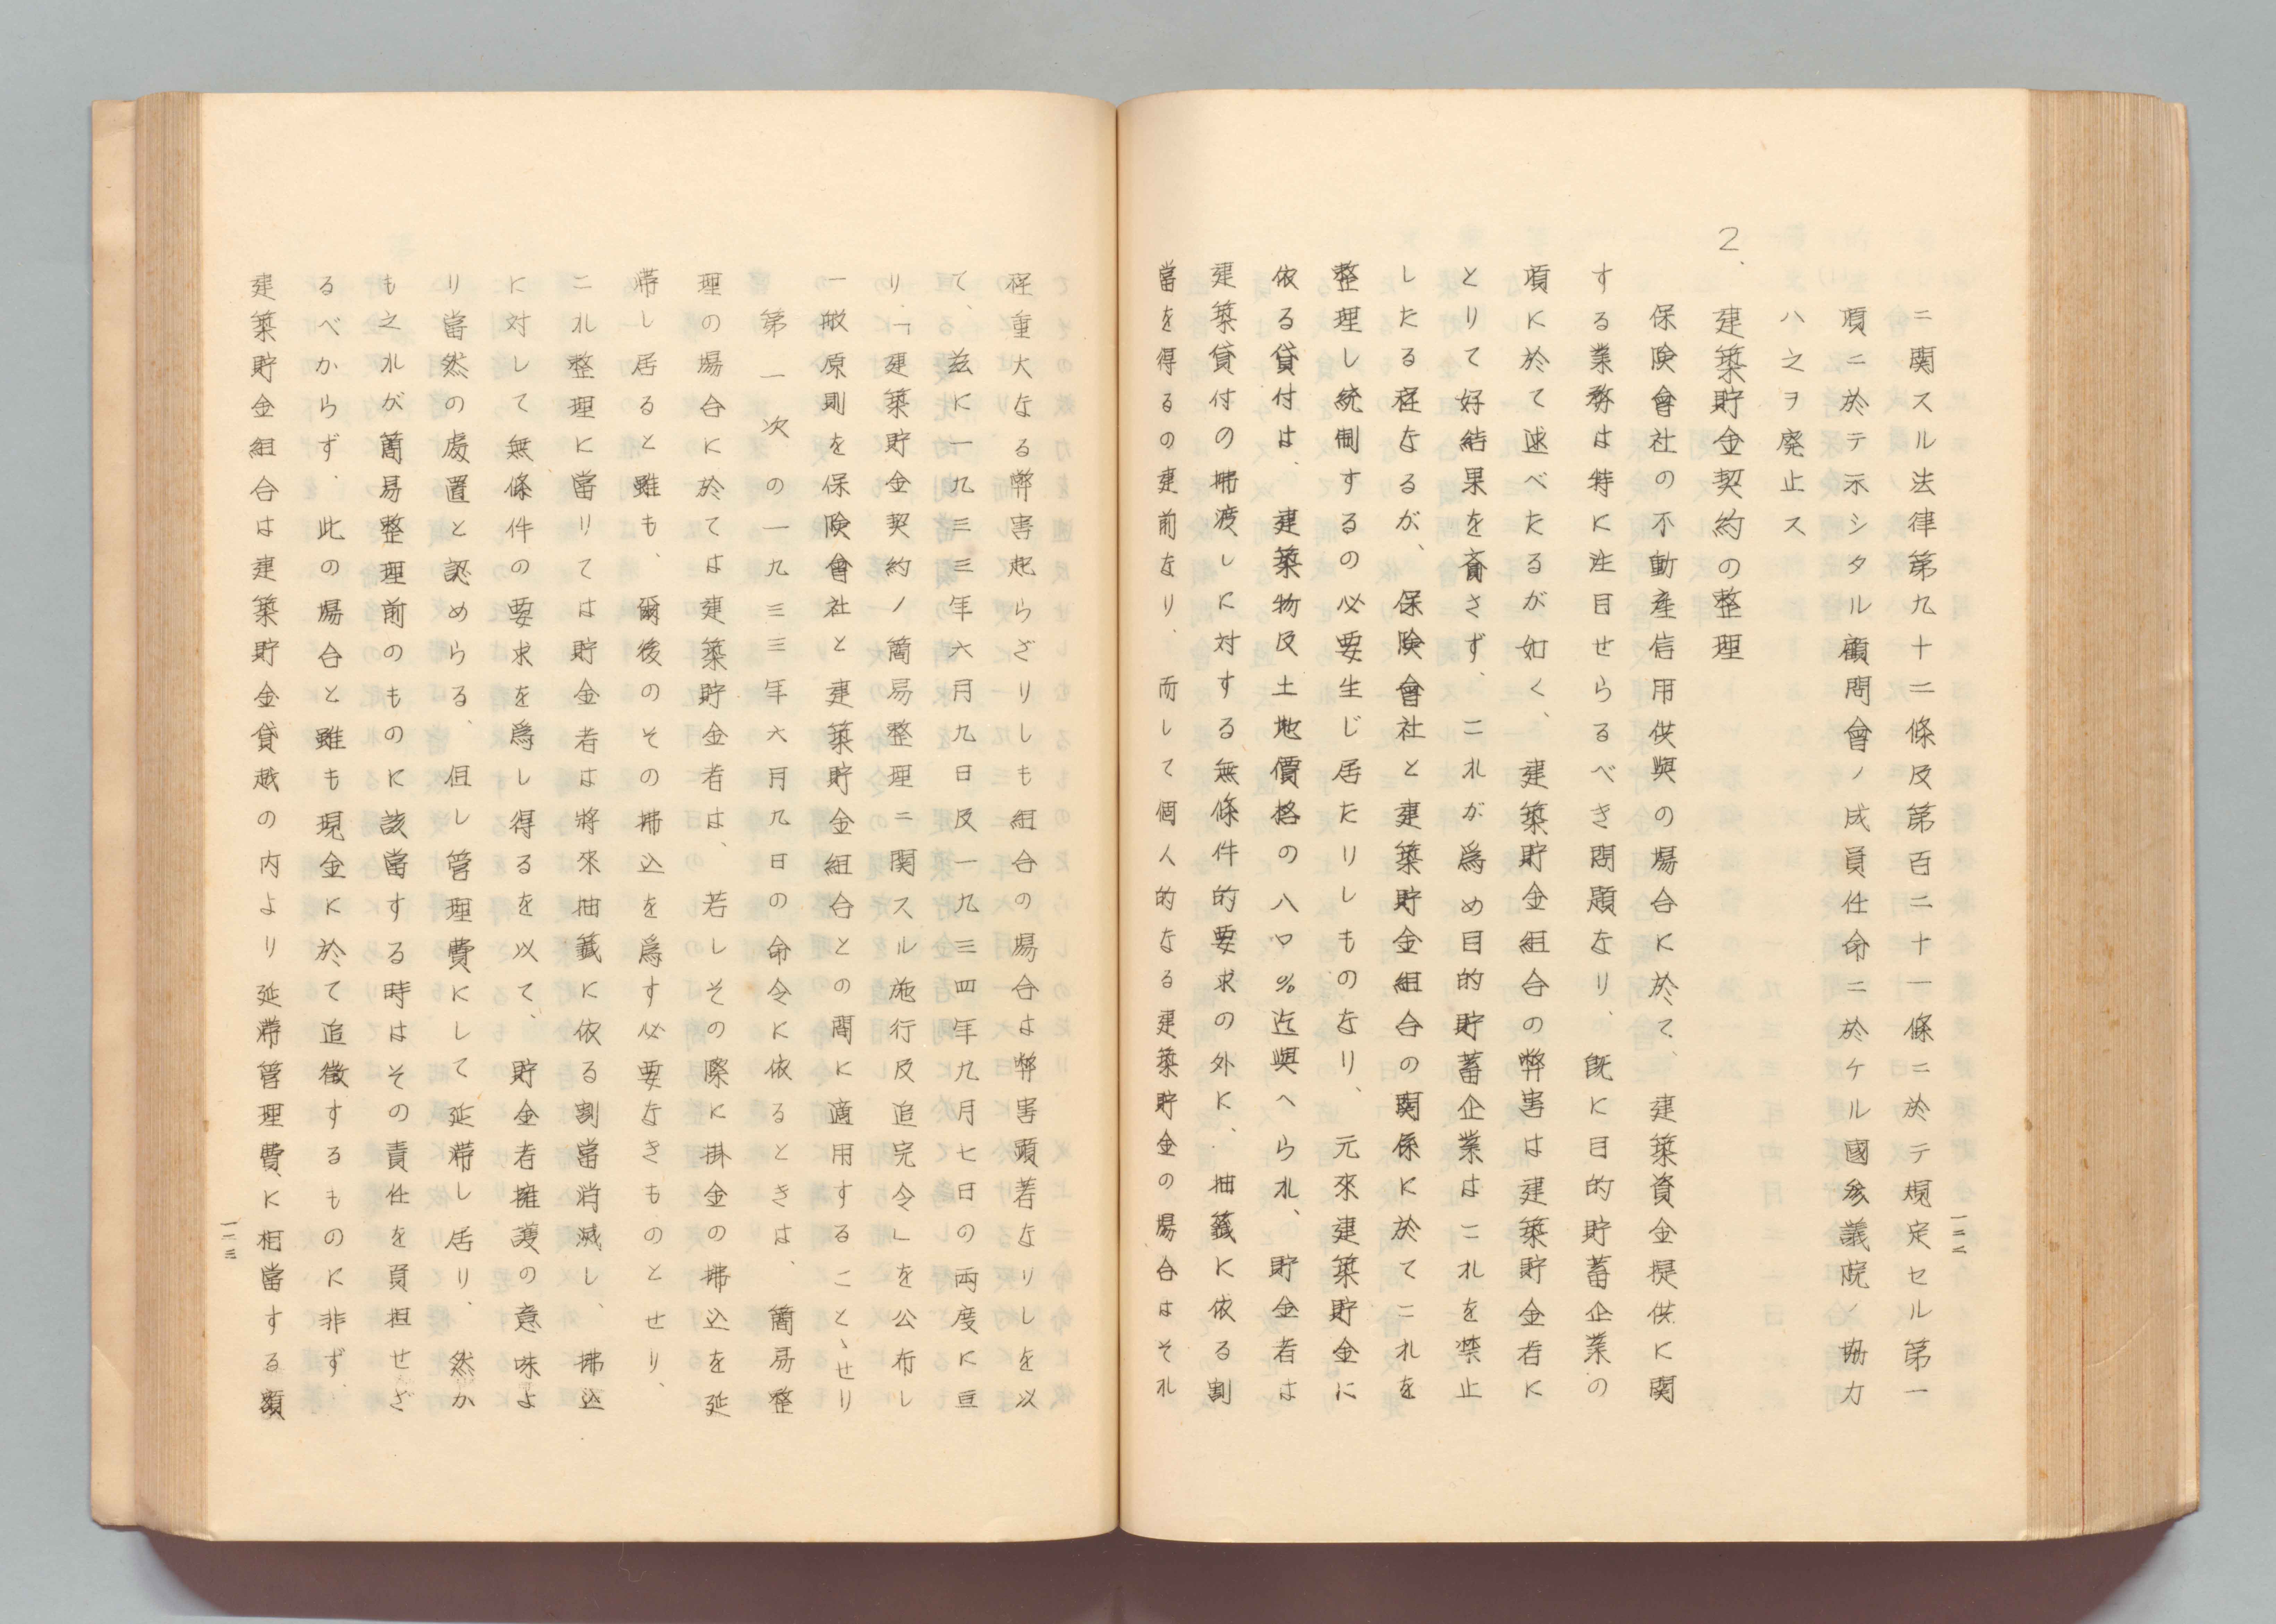 ニ関スル法律第九十二條及第百二十一條ニ於テ規定セル第一
項ニ於テ示シタル顧問會ノ成員任命ニ於ケル國参議院ノ協力
ハ之ヲ廃止ス
2、建築貯金契約の整理
保険會社の不動産信用供與の場合に於て、建築資金提供に関
する業務は特に注目せらるべき問題なり、既に目的貯蓄企業の
項に於て述べたるが如く、建築貯金組合の弊害は建築貯金者に
とりて好結果を齎さず、これが爲め目的貯蓄企業はこれを禁止
したる程なるが、保険會社と建築貯金組合の関係に於てこれを
整理し統制するの必要生じ居たりしものなり、元來建築貯金に
依る貸付は、建築物及土地價格の八〇%迄與へられ、貯金者は
建築貸付の拂渡しに対する無條件的要求の外に、抽籤に依る割
當を得るの建前なり、而して個人的なる建築貯金の場合はそれ
一二二
程重大なる弊害起らざりしも組合の場合は弊害顕著なりしを以
て、茲に一九三三年六月九日及一九三四年九月七日の両度に亘
り、「建築貯金契約ノ簡易整理ニ関スル施行及追完令」を公布し
一般原則を保険會社と建築貯金組合との間に適用することゝせり
第一次の一九三三年六月九日の命令に依るときは、簡易整
理の場合に於ては建築貯金者は、若しその際に掛金の拂込を延
滞し居ると雖も、爾後のその拂込を爲す必要なきものとせり、
これ整理に當りては貯金者は將來抽籤に依る割當消滅し、拂込
に対して無條件の要求を爲し得るを以て、貯金者擁護の意味よ
り當然の處置と認めらる、但し管理費にして延滞し居り、然か
も之れが簡易整理前のものに該當する時はその責任を負担せざ
るべからず、此の場合と雖も現金に於て追徴するものに非ず、
建築貯金組合は建築貯金貸越の内より延滞管理費に相當する額
一二三